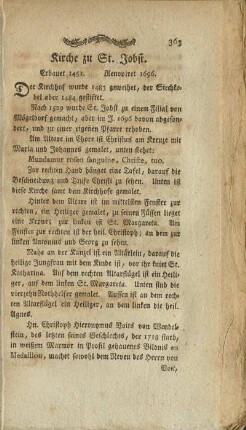 363
Kirche zu St. Jobst.
Erbauet 1451. Renoviret 1696.
Der Kirchhof wurde 1483 geweihet, der Sterbkodel
aber 1484 gestiftet.
Nach 1529 wurde St. Jobst zu einem Filial von
Mögeldorf gemacht, aber im J. 1696 davon abgesondert,
und zu einer eigenen Pfarre erhoben.
Am Altare im Chore ist Christus am Kreuze mit
Maria und Johannes gemalet, unten stehet:
Mundamur roseo sanguine, Christe, tuo.
Zur rechten Hand hänget eine Tafel, darauf die
Beschneidung und Taufe Christi zu sehen. Unten ist
diese Kirche samt dem Kirchhofe gemalet.
Hinter dem Altare ist im mittelsten Fenster zur
rechten, ein Heiliger gemalet, zu seinen Füssen lieget
eine Krone; zur linken ist St. Margareta. Am
Fenster zur rechten ist der heil. Christoph, an dem zur
linken Antonius und Georg zu sehen.
Nahe an der Kanzel ist ein Altärlein; darauf die
heilige Jungfrau mit dem Kinde ist, vor ihr kniet St.
Katharina. Auf dem rechten Altarflügel ist ein Heiliger,
auf dem linken St. Margareta. Unten sind die
vierzehn Nothhelfer gemalet. Aussen ist an dem rechten
Altarflügel ein Heiliger, an dem linken die heil.
Agnes.
Hn. Christoph Hieronymus Voits von Wendelstein,
des letzten seines Geschlechts, der 1719 starb,
in weissem Marmor in Profil gehauenes Bildnis en
Medaillon, machet sowohl dem Neven des Herrn von